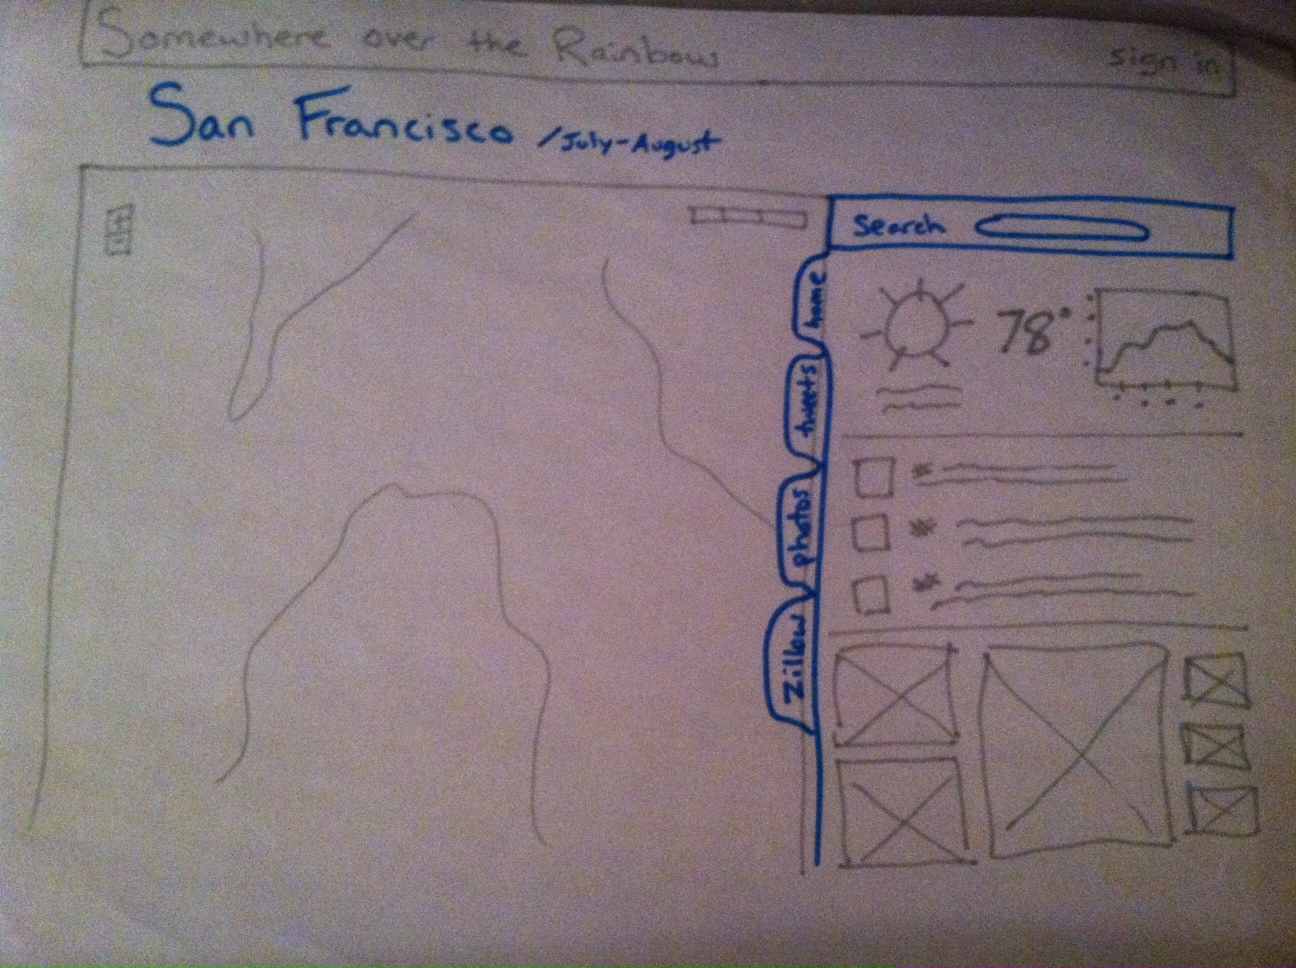 Somewhere over the Rainbow
sign in
San Francisco /July-August
+
-
Search
home
tweets
photos
Zillow
78°